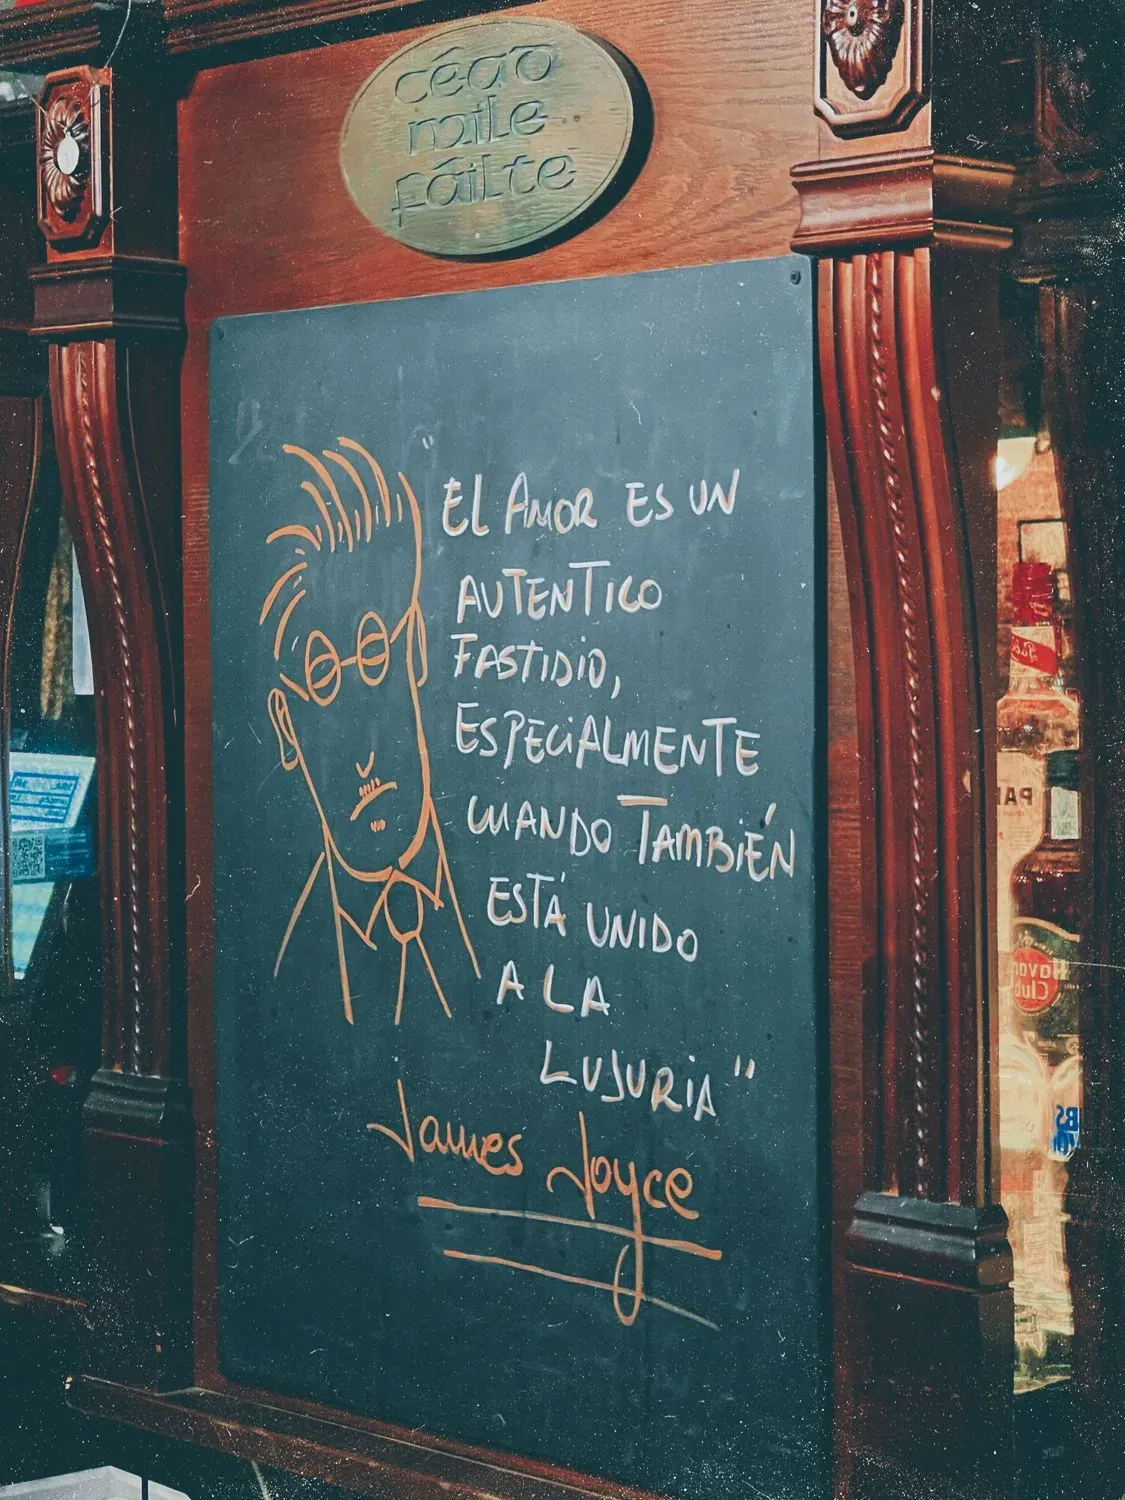 céad
míle
fáilte
"EL AMOR ES UN
AUTENTICO
FASTIDIO,
ESPECiALMENTE
CUANDO TAMBiÉN
ESTÁ UNIDO
A LA
LUJURIA"
James Joyce
PA
Havana
Club